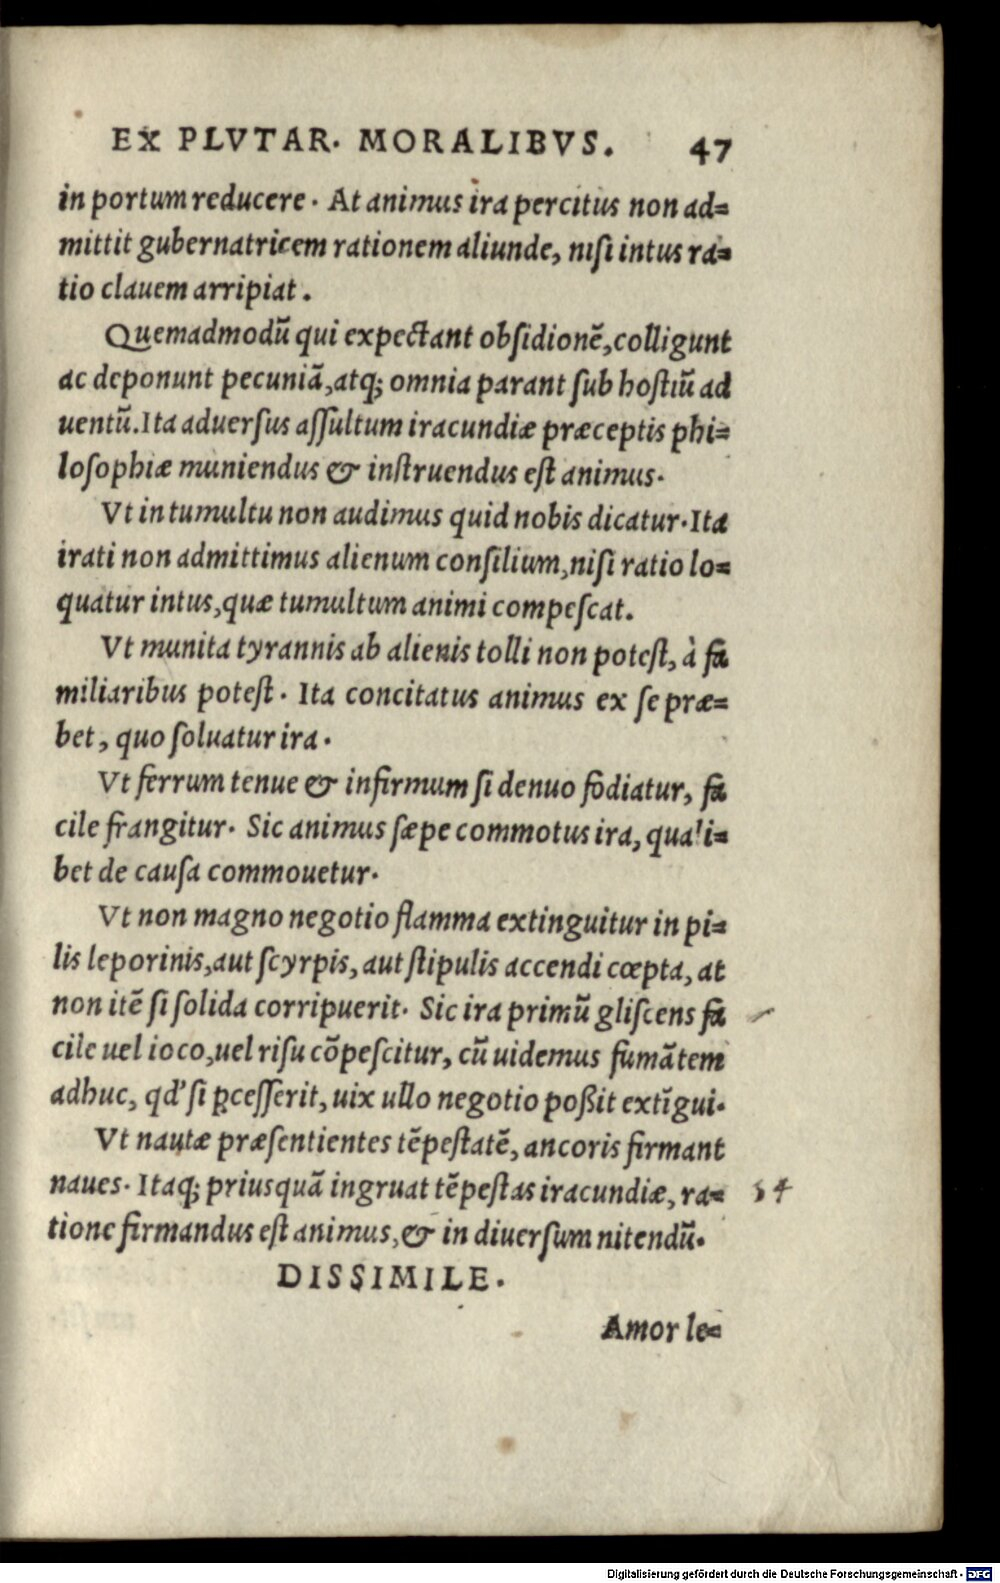 EX PLVTAR. MORALIBVS. 47
in portum reducere. At animus ira percitus non ad=
mittit gubernatricem rationem aliunde, niſi intus ra=
tio clauem arripiat.
Quemadmodũ qui expectant obſidionẽ, colligunt
ac deponunt pecuniã, atq; omnia parant ſub hoſtiũ ad
uentũ. Ita aduerſus aſſultum iracundiæ præceptis phi=
loſophiæ muniendus & inſtruendus eſt animus.
Vt in tumultu non audimus quid nobis dicatur. Ita
irati non admittimus alienum conſilium, niſi ratio lo=
quatur intus, quæ tumultum animi compeſcat.
Vt munita tyrannis ab alienis tolli non poteſt, à fa
miliaribus poteſt. Ita concitatus animus ex ſe præ=
bet, quo ſoluatur ira.
Vt ferrum tenue & infirmum ſi denuo fodiatur, fa
cile frangitur. Sic animus ſæpe commotus ira, quali=
bet de cauſa commouetur.
Vt non magno negotio flamma extinguitur in pi=
lis leporinis, aut ſcyrpis, aut ſtipulis accendi cœpta, at
non itẽ ſi ſolida corripuerit. Sic ira primũ gliſcens fa
cile uel ioco, uel riſu cõpeſcitur, cũ uidemus fumãtem
adhuc, qd' ſi ꝓceſſerit, uix ullo negotio poßit extĩgui.
Vt nautæ præſentientes tẽpeſtatẽ, ancoris firmant
naues. Itaq; priusquã ingruat tẽpeſtas iracundiæ, ra=
tione firmandus eſt animus, & in diuerſum nitendũ.
54
DISSIMILE.
Amor le=
Digitalisierung gefördert durch die Deutsche Forschungsgemeinschaft - DFG